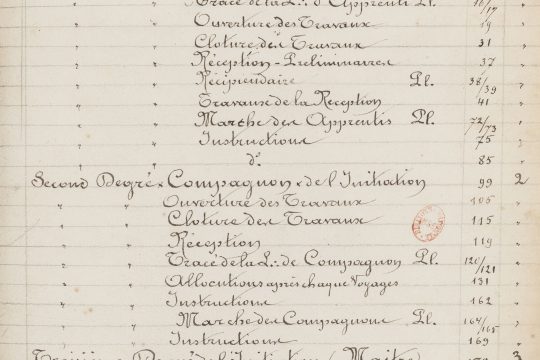 " " Tracé de la L∴ d'Apprenti Pl. 16/17 "
" " Ouverture des Travaux 19 "
" " Cloture des Travaux 31 "
" " Réception-Préliminaires 37 "
" " Récipiendaire Pl. 38/39 "
" " Travaux de la Réception 41 "
" " Marche des Apprentis Pl. 72/73 "
" " Instructions 75 "
" " d° 85 "
Second Degré. Compagnon. de l'Initiation 99 2
" " Ouverture des Travaux 105 "
" " Cloture des Travaux 115 "
" " Réception 119 "
" " Tracé de la L∴ de Compagnon Pl. 120/121 "
" " Allocutions après chaque Voyages 131 "
" " Instructions 162 "
" " Marche des Compagnons Pl. 164/165 "
" " Instructions 169 "
Troisième Degré de l'Initiation Maître 3